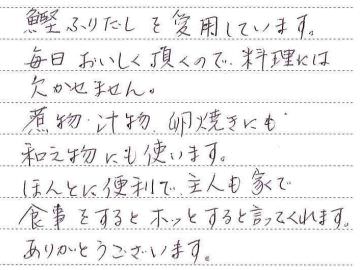 鰹ふりだしを愛用しています。
毎日おいしく頂くので、料理には
欠かせません。
煮物、汁物、卵焼きにも
和え物にも使います。
ほんとに便利で、主人も家で
食事をするとホッとすると言ってくれます。
ありがとうございます。